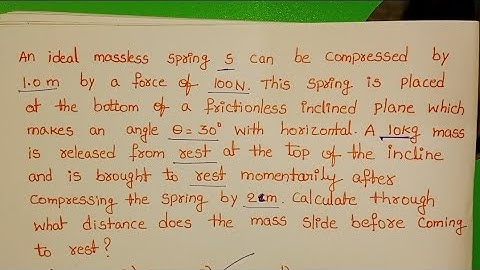 An ideal massless spring S can be compressed by
1.0 m by a force of 100N. This spring is placed
at the bottom of a frictionless inclined plane which
makes an angle θ = 30° with horizontal. A 10kg mass
is released from rest at the top of the incline
and is brought to rest momentarily after
compressing the spring by 2 m. Calculate through
what distance does the mass slide before coming
to rest?